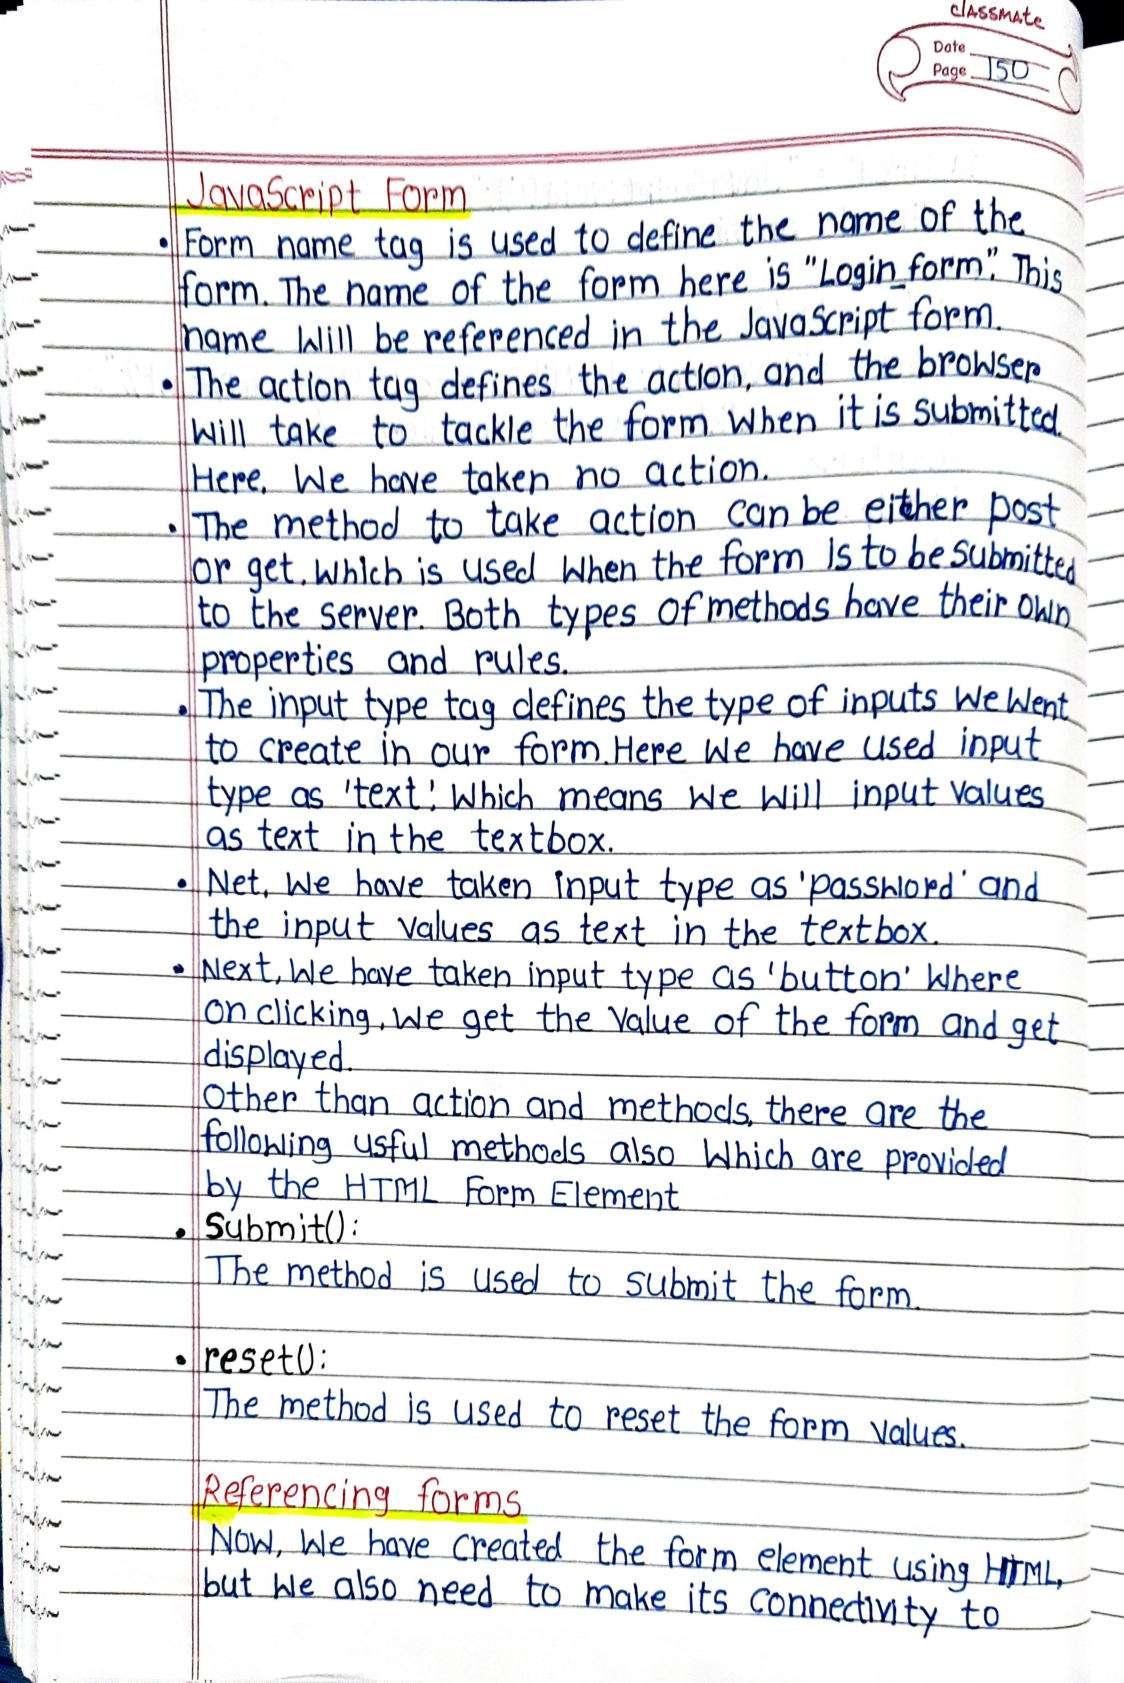 classmate
Date
Page 150
JavaScript Form
• Form name tag is used to define the name of the
form. The name of the form here is "Login_form". This
name will be referenced in the JavaScript form.
• The action tag defines the action, and the browser
will take to tackle the form when it is submitted.
Here, we have taken no action.
• The method to take action can be either post
or get, which is used when the form is to be submitted
to the server. Both types of methods have their own
properties and rules.
• The input type tag defines the type of inputs we went
to create in our form. Here we have used input
type as 'text', which means we will input values
as text in the textbox.
• Net, we have taken input type as 'password' and
the input values as text in the textbox.
• Next, we have taken input type as 'button' where
on clicking, we get the value of the form and get
displayed.
Other than action and methods, there are the
following usful methods also which are provided
by the HTML Form Element
• Submit():
The method is used to submit the form.
• reset():
The method is used to reset the form values.
Referencing forms
Now, we have created the form element using HTML,
but we also need to make its connectivity to